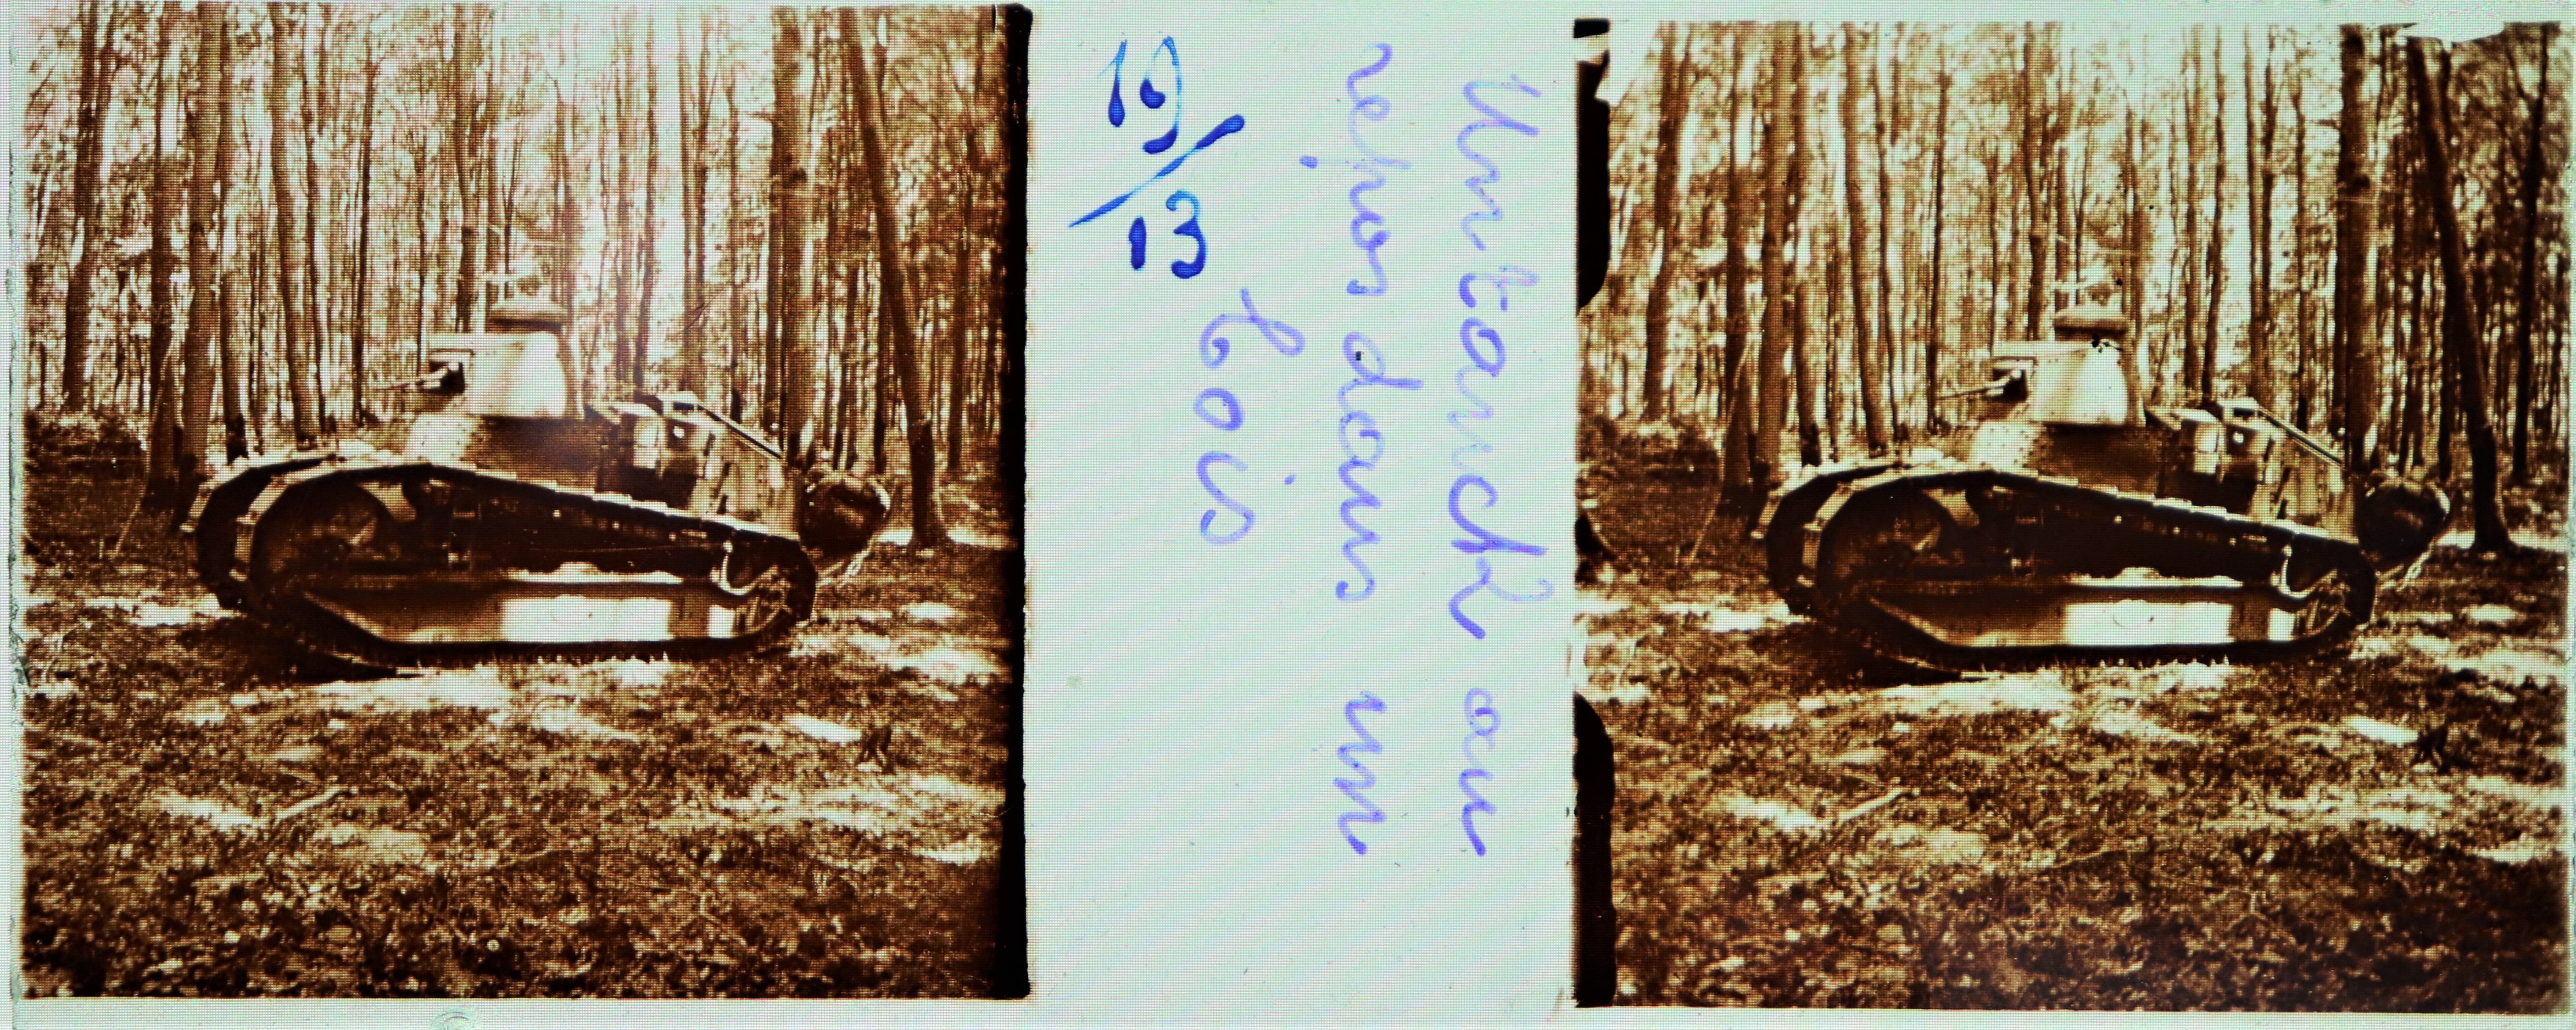 Un tanck au
repos dans un
bois
19/13